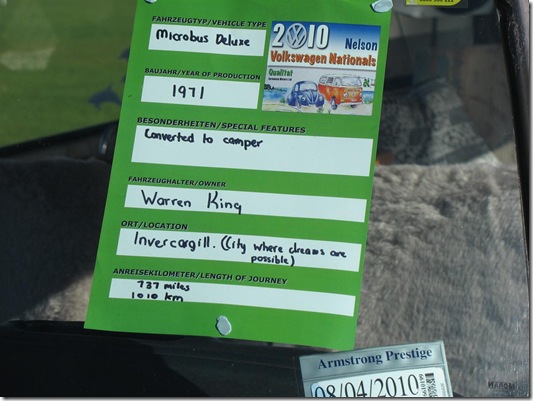 FAHRZEUGTYP/VEHICLE TYPE
Microbus Deluxe
2010 Nelson
Volkswagen Nationals
Qualität
BAUJAHR/YEAR OF PRODUCTION
1971
BESONDERHEITEN/SPECIAL FEATURES
Converted to camper
FAHRZEUGHALTER/OWNER
Warren King
ORT/LOCATION
Invercargill. (City where dreams are
possible)
ANREISEKILOMETER/LENGTH OF JOURNEY
737 miles
1010 km
Armstrong Prestige
08/04/2010